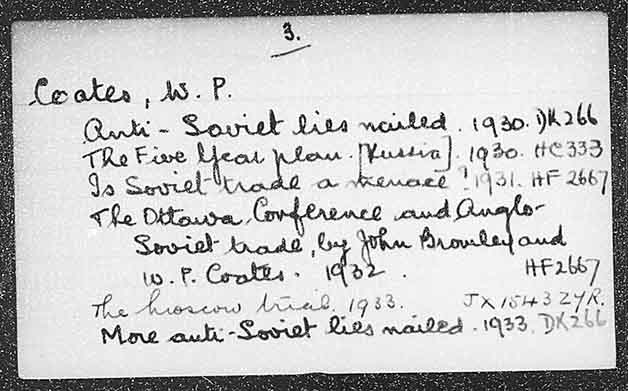 3.
Coates, W. P.
Anti-Soviet lies nailed. 1930. DK266
The Five Year plan. [Russia]. 1930. HC333
Is Soviet trade a menace? 1931. HF2667
The Ottawa Conference and Anglo-
Soviet trade, by John Bromley and
W. P. Coates. 1932. HF2667
The Moscow trial. 1933. JX1543ZYR.
More anti-Soviet lies nailed. 1933. DK266